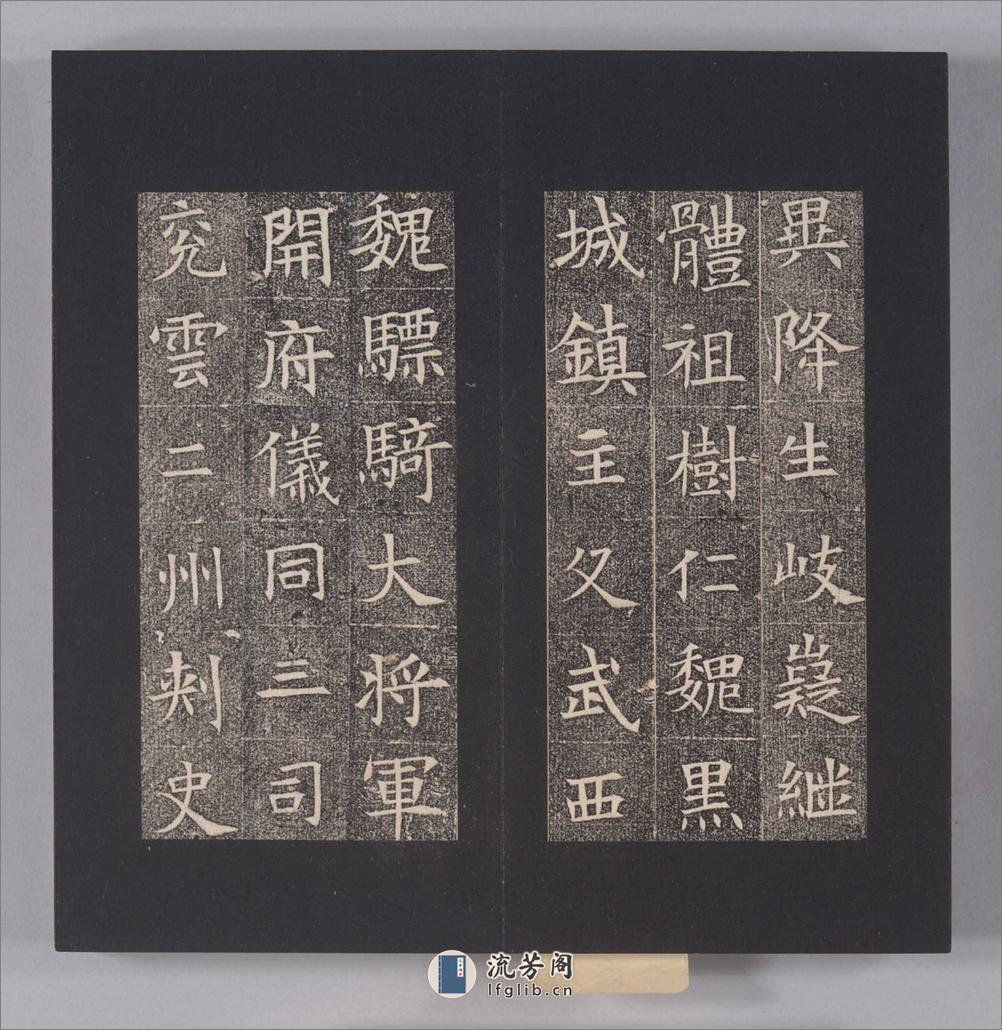 異降生岐嶷繼
體祖樹仁魏黑
城鎮主父武西
魏驃騎大將軍
開府儀同三司
兖雲二州刺史
流芳阁
lfglib.cn